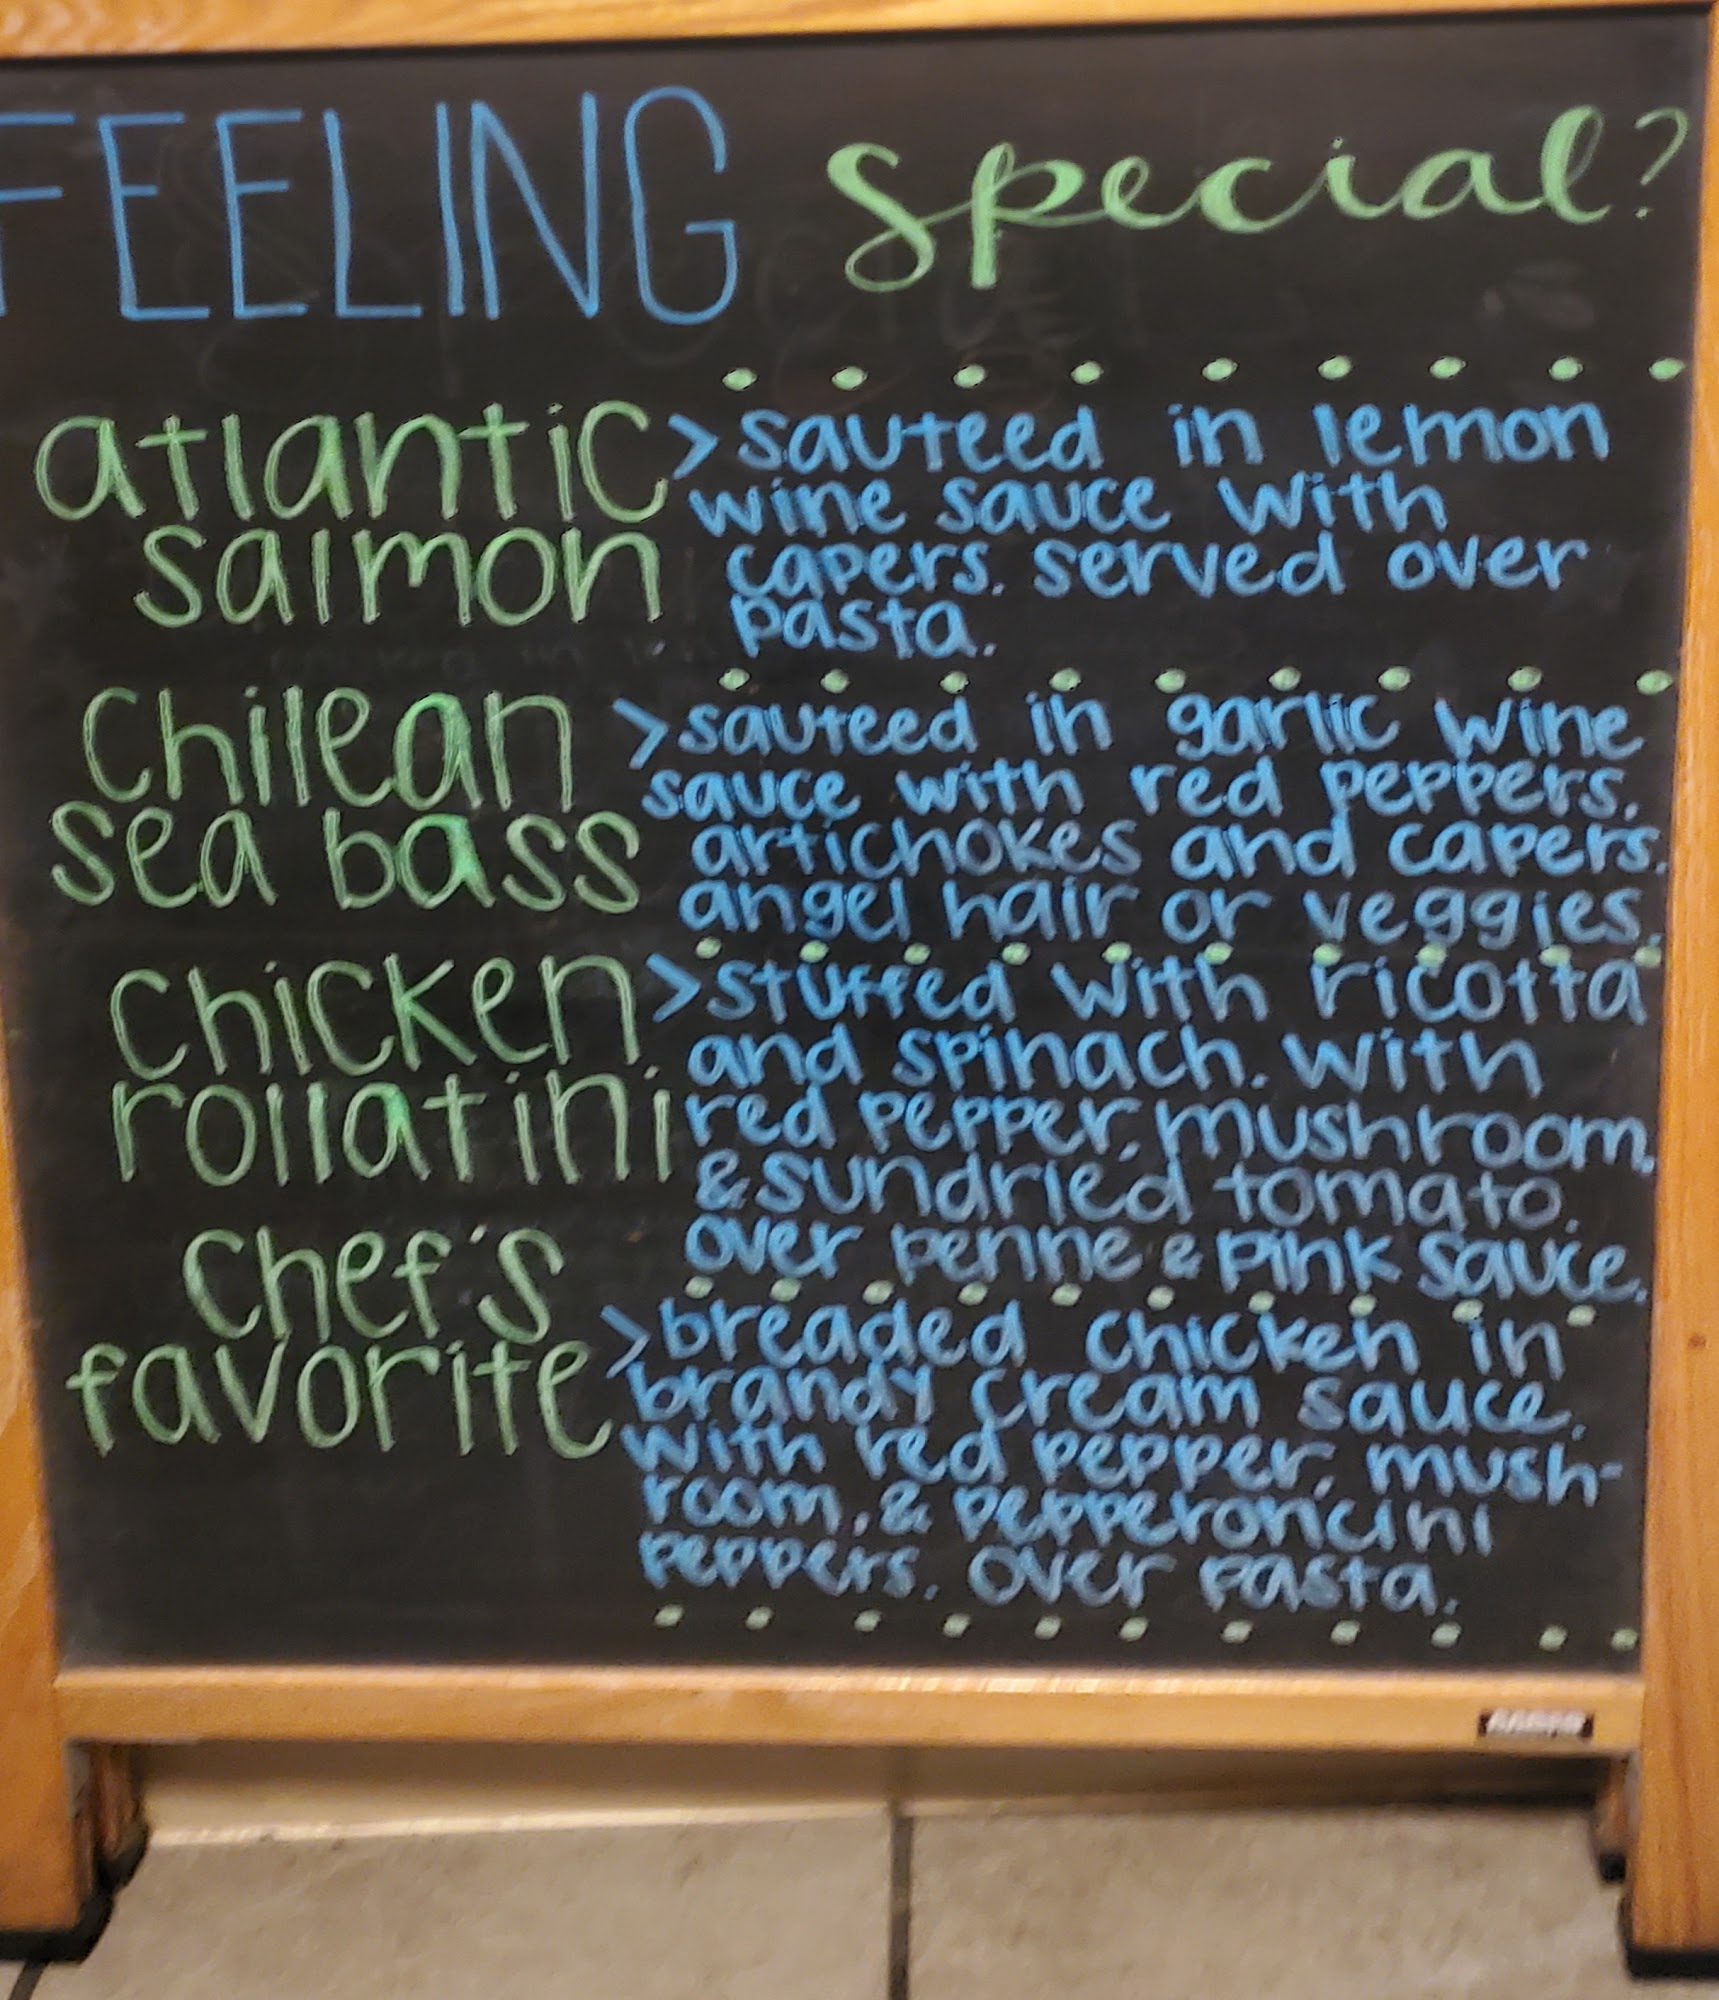 FEELING special?
atlantic salmon
>sauteed in lemon
wine sauce with
capers. served over
pasta.
chilean sea bass
>sauteed in garlic wine
sauce with red peppers,
artichokes and capers.
angel hair or veggies.
chicken rollatini
>stuffed with ricotta
and spinach. with
red pepper, mushroom,
& sundried tomato.
over penne & pink sauce.
chef's favorite
>breaded chicken in
brandy cream sauce.
with red pepper, mush-
room, & pepperoncini
peppers. over pasta.